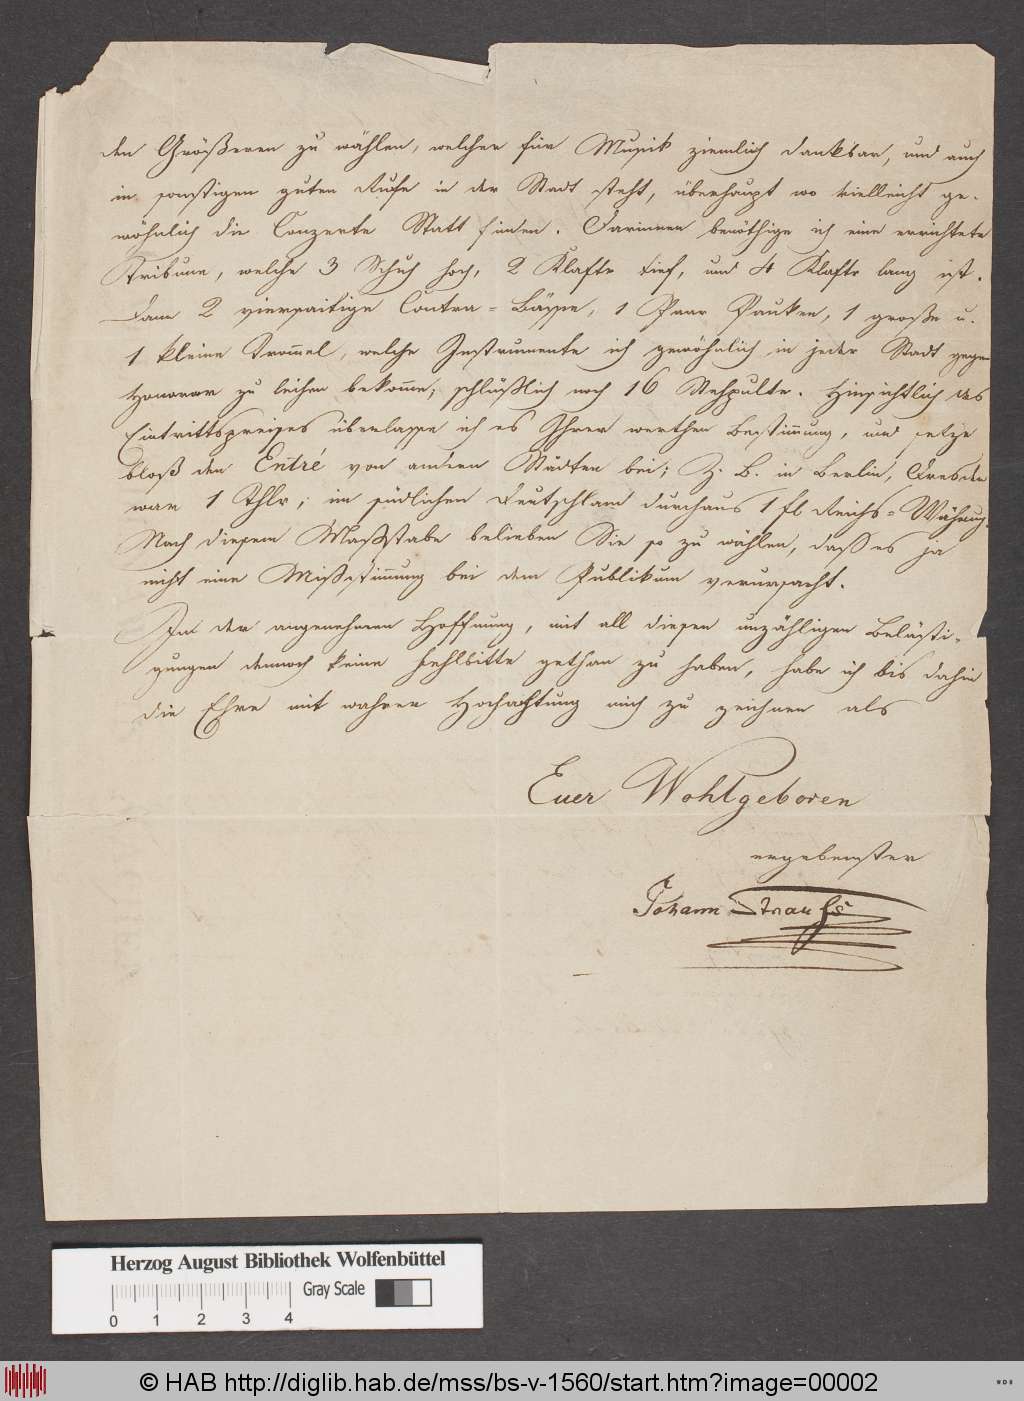 den Größeren zu wählen, welcher für Musik ziemlich dankbar, und auch
in sonstigen guten Rufe in der Stadt steht, überhaupt wo vielleicht ge-
wöhnlich die Conzerte Statt finden. Darinnen benöthige ich eine errichtete
Tribune, welche 3 Schuh hoch, 2 Klaftr tief, und 4 Klaftr lang ist.
Dann 2 viersaitige Contra-Bässe, 1 Paar Pauken, 1 große u.
1 kleine Trom̄el, welche Instrumente ich gewöhnlich in jeder Stadt gegen
Honorar zu leihen bekom̄e; schlüßlich noch 16 Stehpulte. Hinsichtlich des
Eintrittspreises überlasse ich es Ihrer werthen Bestim̄ung, und setze
bloß den Entré von andern Städten bei; Z. B. in Berlin, Dresden
war 1 Thlr; im südlichen Deutschland durchaus 1 fl Reichs-Währung.
Nach diesem Maßstabe belieben Sie so zu wählen, daß es ja
nicht eine Mißstim̄ung bei dem Publikum verursacht.
In der angenehmen Hoffnung, mit all diesen unzähligen Belästi-
gungen dennoch keine Fehlbitte gethan zu haben, habe ich bis dahin
die Ehre mit wahrer Hochachtung mich zu zeichnen als
Euer Wohlgeboren
ergebenster
Johann Strauß
Herzog August Bibliothek Wolfenbüttel
Gray Scale
0 1 2 3 4
© HAB http://diglib.hab.de/mss/bs-v-1560/start.htm?image=00002